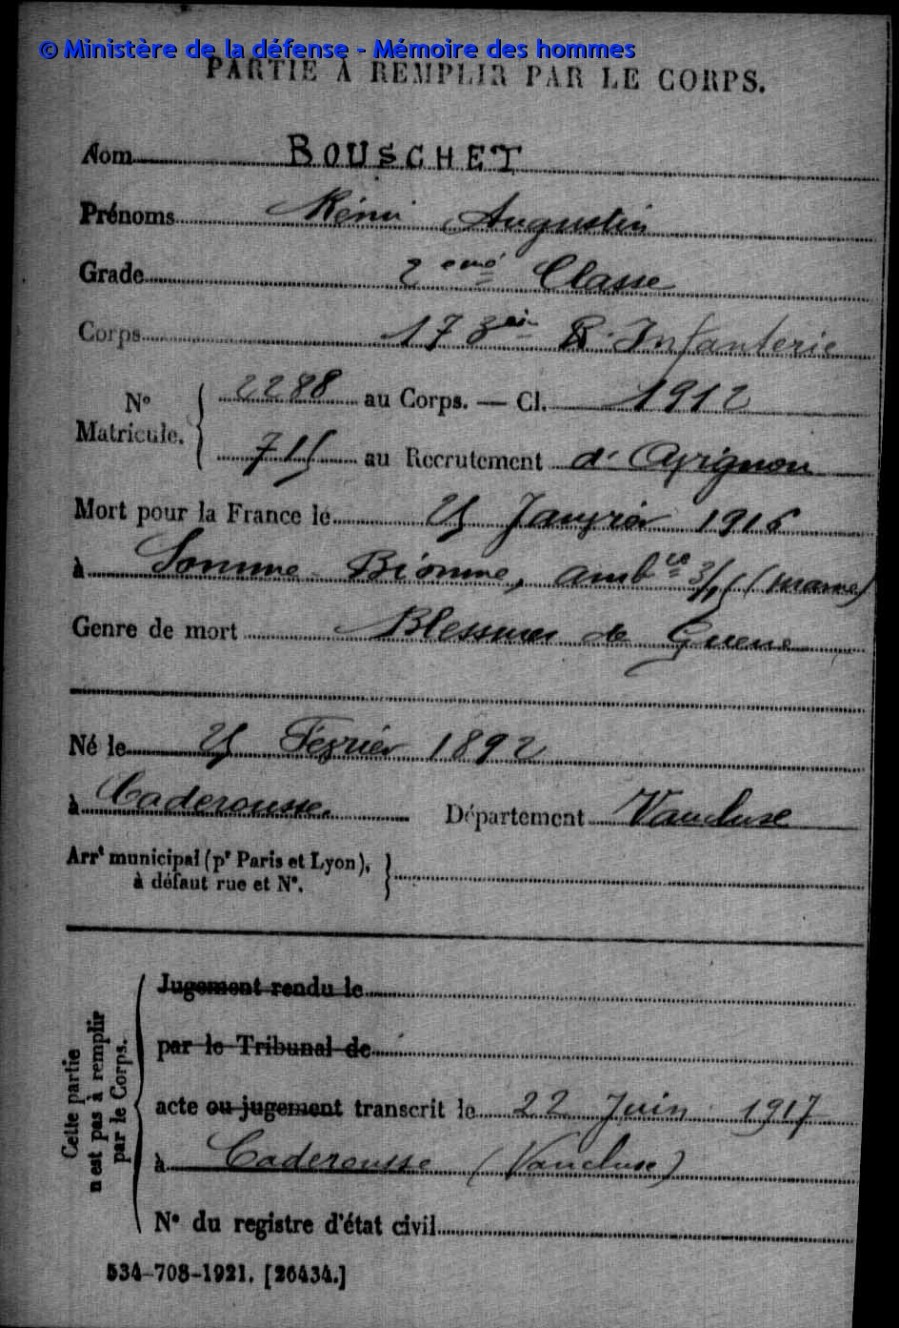 © Ministère de la défense - Mémoire des hommes
PARTIE À REMPLIR PAR LE CORPS.
Nom BOUSCHET
Prénoms Rémi Augustin
Grade 2eme Classe
Corps 173ei R. Infanterie
N° Matricule. 2288 au Corps. — Cl. 1912
715 au Recrutement d'Avignon
Mort pour la France le 25 Janvier 1916
à Somme-Bionne, ambce 3/15 (marne)
Genre de mort Blessures de Guerre
Né le 25 Fevrier 1892
à Caderousse. Département Vaucluse
Arrt municipal (pr Paris et Lyon),
à défaut rue et N°.
Cette partie
n'est pas à remplir
par le Corps.
Jugement rendu le
par le Tribunal de
acte ou jugement transcrit le 22 Juin 1917
à Caderousse (Vaucluse)
N° du registre d'état civil
534-708-1921. [26434.]